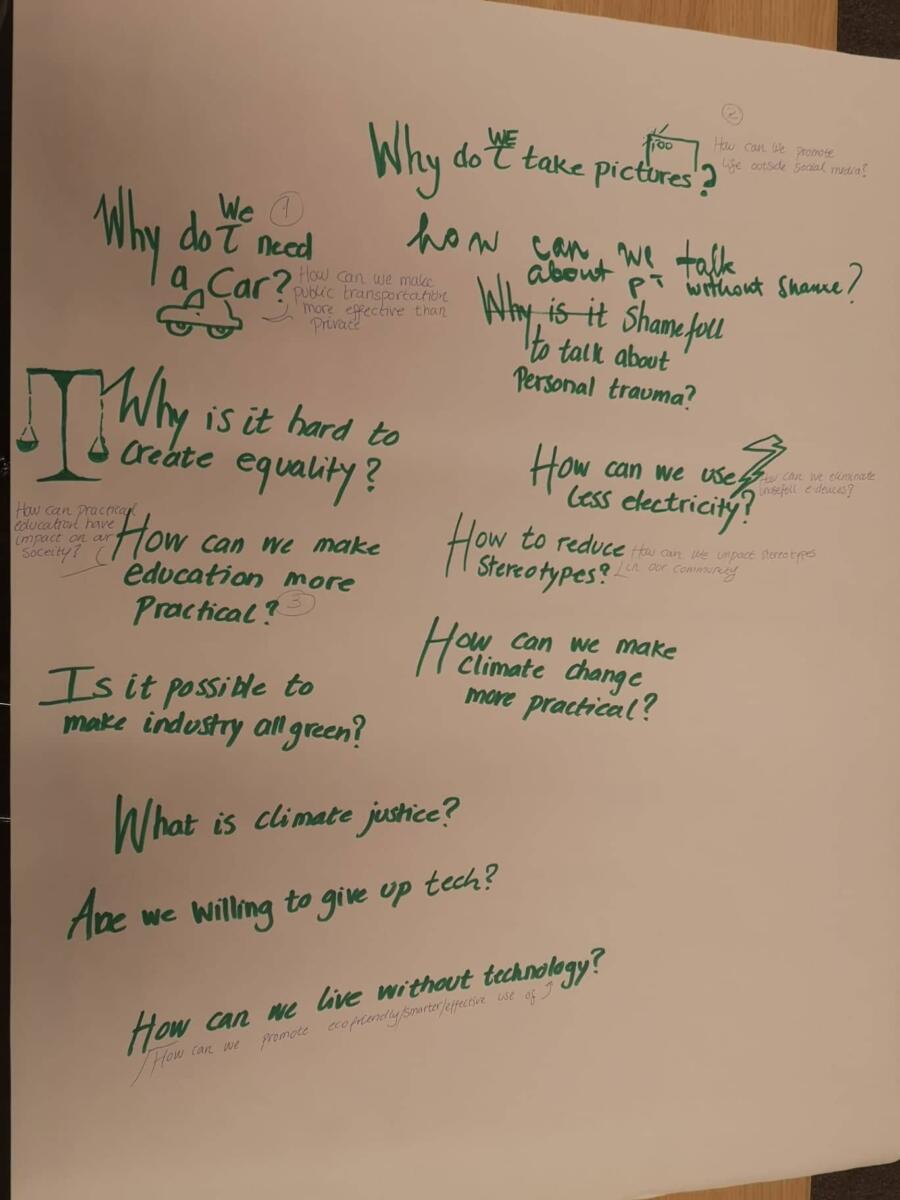 ②
Why do I WE take pictures?
How can we promote
life outside social media?
We ①
Why do I need
a Car?
How can we make
public transportation
more effective than
Private
how can we talk
about PT without Shame?
Why is it Shamefull
to talk about
Personal trauma?
Why is it hard to
create equality?
How can we use
less electricity?
How can we eliminate
usefull e-devices?
How can Practical
education have
impact on our
Soceity?
How can we make
education more
Practical? ③
How to reduce
Stereotypes?
How can we impact stereotypes
in our community
How can we make
climate change
more practical?
Is it possible to
make industry all green?
What is climate justice?
Are we willing to give up tech?
How can we live without technology?
How can we promote ecofriendly/smarter/effective use of